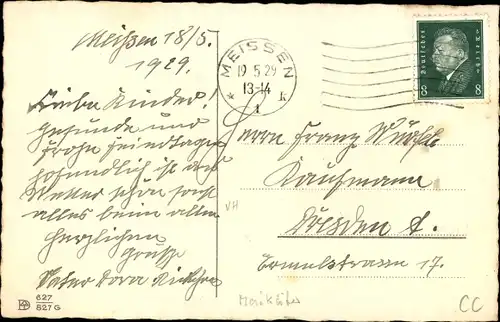 Meißen 18/5.
1929.
Liebe Kinder!
gesunde und
frohe Feiertage
hoffentlich ist das
Wetter schön sonst
alles beim alten
herzlichen
Grüße
Vater Dora
MEISSEN
19.5.29
13-14
* 1 k
Deutsches Reich
8 8
Herrn Franz
Kaufmann
Dresden A.
17.
VH
627
827 G
CC